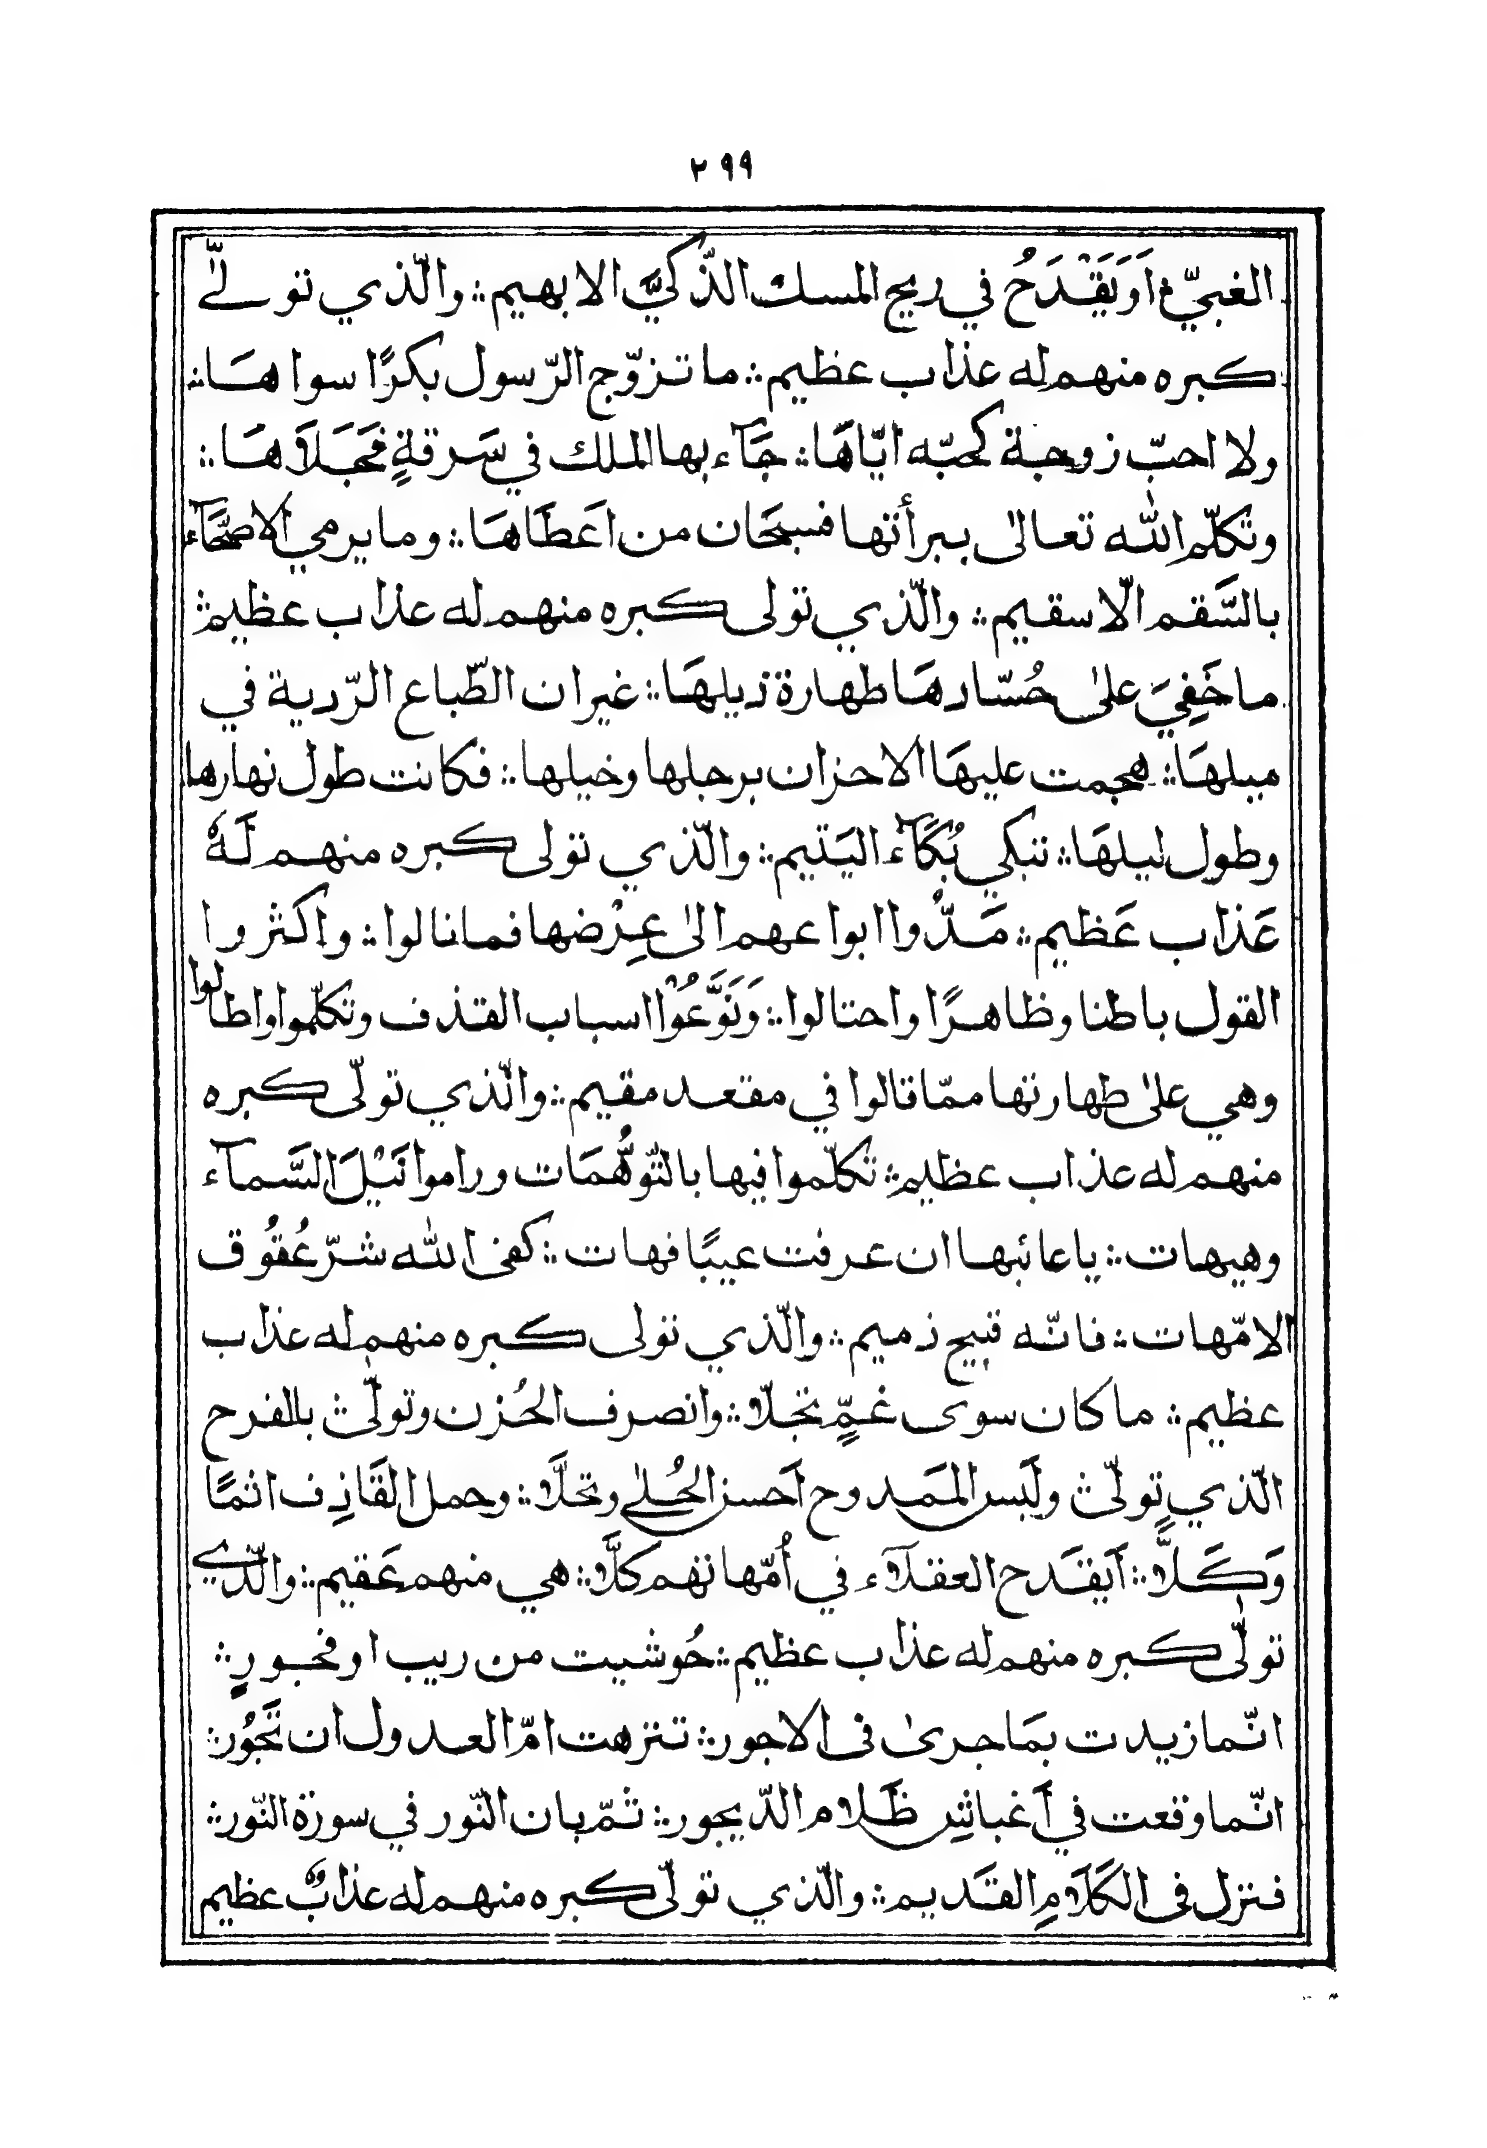 ٢٩٩
الغبيّ اَوَيَقْدَحُ في ريح المسك الذّكيّ الا بهيم ؞ والّذي تولّٰے
كبره منهم له عذاب عظيم ؞ ما تزوّج الرّسول بكرًا سواهَا ؞
ولا احبّ زوجة كحبّه ايّاهَا ؞ جَآء بها الملك في سَرقةٍ فَجَلَاهَا ؞
وتكلّم اللّٰه تعالىٰ ببرأتها فسبحَان من اعَطَاهَا ؞ وما يرمي الاصحَّآء
بالسَّقم الّا سقيم ؞ والّذي تولى كبره منهم له عذاب عظيم ؞
ما خَفِيَ علىٰ حُسّادهَا طهارة ذيلهَا ؞ غير ان الطّباع الرّدية في
ميلهَا ؞ هجمت عليهَا الاحزان برجلها وخيلها ؞ فكانت طول نهارها
وطول ليلهَا ؞ تبكي بُكَآء اليَتيم ؞ والّذي تولى كبره منهم لَهٗ
عَذاب عَظيم ؞ مَدُّوا ابواعهم الىٰ عِرْضها فما نالوا ؞ واكثروا
القول باطنا وظاهرًا واحتالوا ؞ وَنَوَّعُوْا اسباب القذف وتكلّموا واطالوا
وهي علىٰ طهارتها ممّا قالوا في مقعد مقيم ؞ والّذي تولّى كبره
منهم له عذاب عظيم ؞ تكلّموا فيها بالتّوهُّمَات وراموا نَيْلَ السَّمآء
وهيهات ؞ يا عائبها ان عرفت عيبًا فهات ؞ كفى اللّٰه شرّ عُقُوق
الامّهات ؞ فانّه قبيح ذميم ؞ والّذي تولى كبره منهم له عذاب
عظيم ؞ ما كان سوى غمٍّ تجلّا ؞ وانصرف الحُزن وتولّٰى ؞ بالفرح
الّذي تولّٰى ؞ ولَبَس المَمدوح اَحسن الحُلٰے وتحلَّا ؞ وحمل القَاذِف اثمًا
وَكَلًّا ؞ اَيَقدح العقلآء في اُمّهاتهم كَلَّا ؞ هي منهم عَقيم ؞ والّذي
تولّٰى كبره منهم له عذاب عظيم ؞ حُوشيت من ريب او فجورٍ ؞
انّما زيدت بمَا جرىٰ فى الاجور ؞ تنزهت امّ العدول ان تَجُور ؞
انّما وقعت في اَغباشِ ظَلام الدّيجور ؞ ثمّ بان النّور في سورة النّور ؞
فنزل فى الكَلَامِ القَديم ؞ والّذي تولّى كبره منهم له عذابٌ عظيم